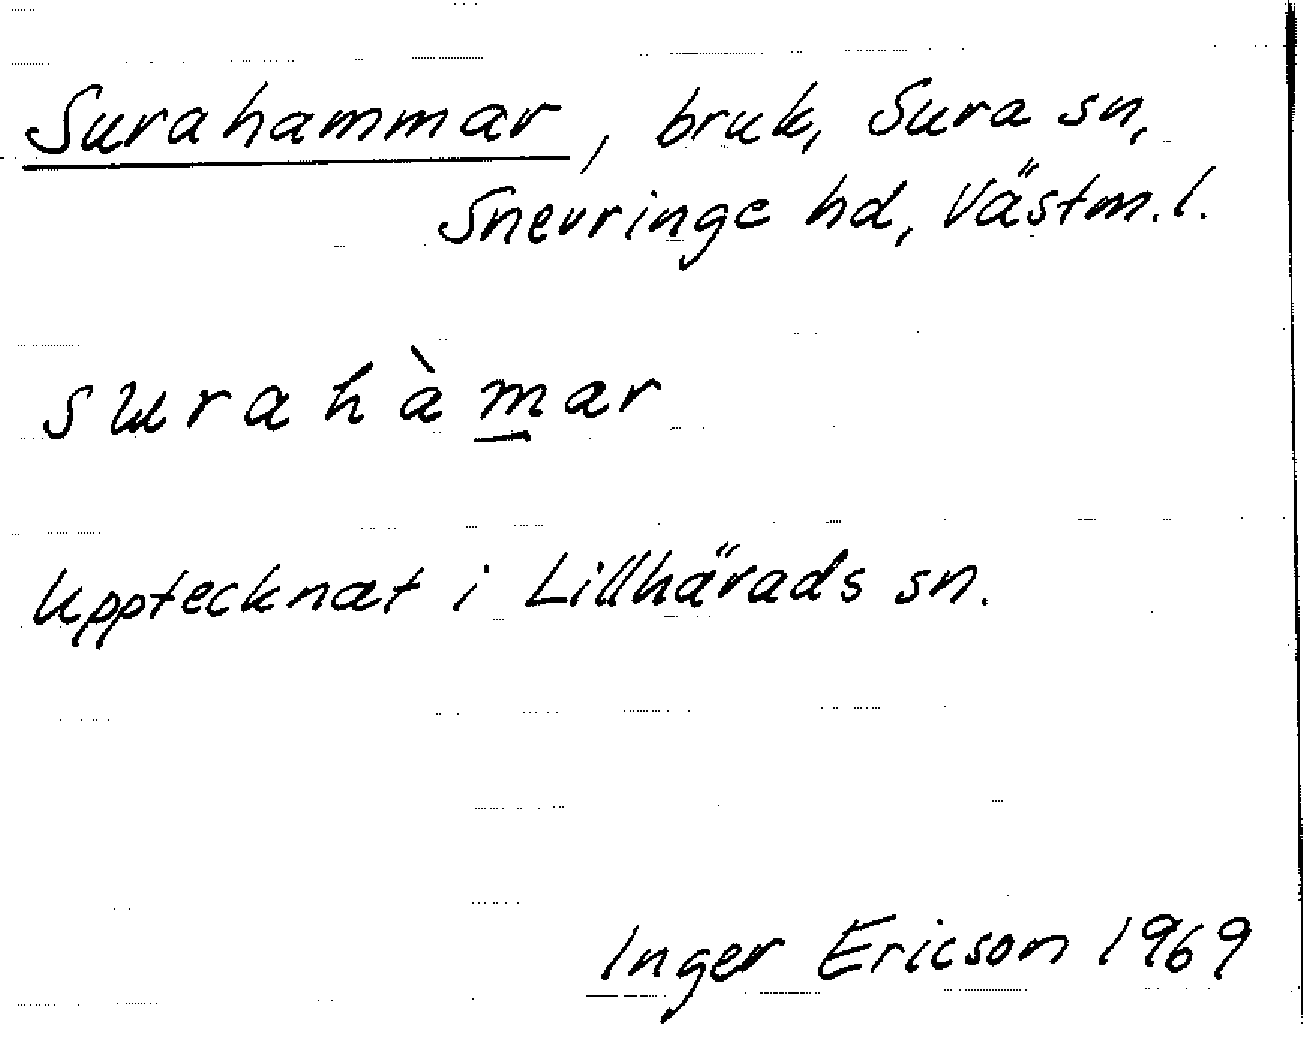 Surahammar, bruk, Sura sn,
Snevringe hd, Västm.l.
surahàmar
Upptecknat i Lillhärads sn.
Inger Ericson 1969